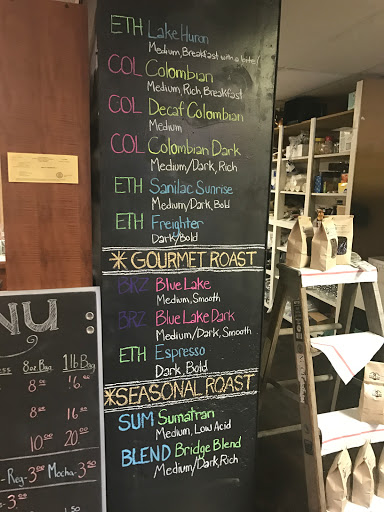 ETH Lake Huron
Medium, Breakfast with a bite!
COL Colombian
Medium, Rich, Breakfast
COL Decaf Colombian
Medium
COL Colombian Dark
Medium/Dark, Rich
ETH Sanilac Sunrise
Medium/Dark, Bold
ETH Freighter
Dark/Bold
* GOURMET ROAST
BRZ Blue Lake
Medium, Smooth
BRZ Blue Lake Dark
Medium/Dark, Smooth
ETH Espresso
Dark, Bold
*SEASONAL ROAST
SUM Sumatran
Medium, Low Acid
BLEND Bridge Blend
Medium/Dark, Rich
NU
ess 8oz. Bag 1lb Bag
8.00 16.00
8.00 16.00
10.00 20.00
-Reg-3.00 Mocha-3.50
-3.00